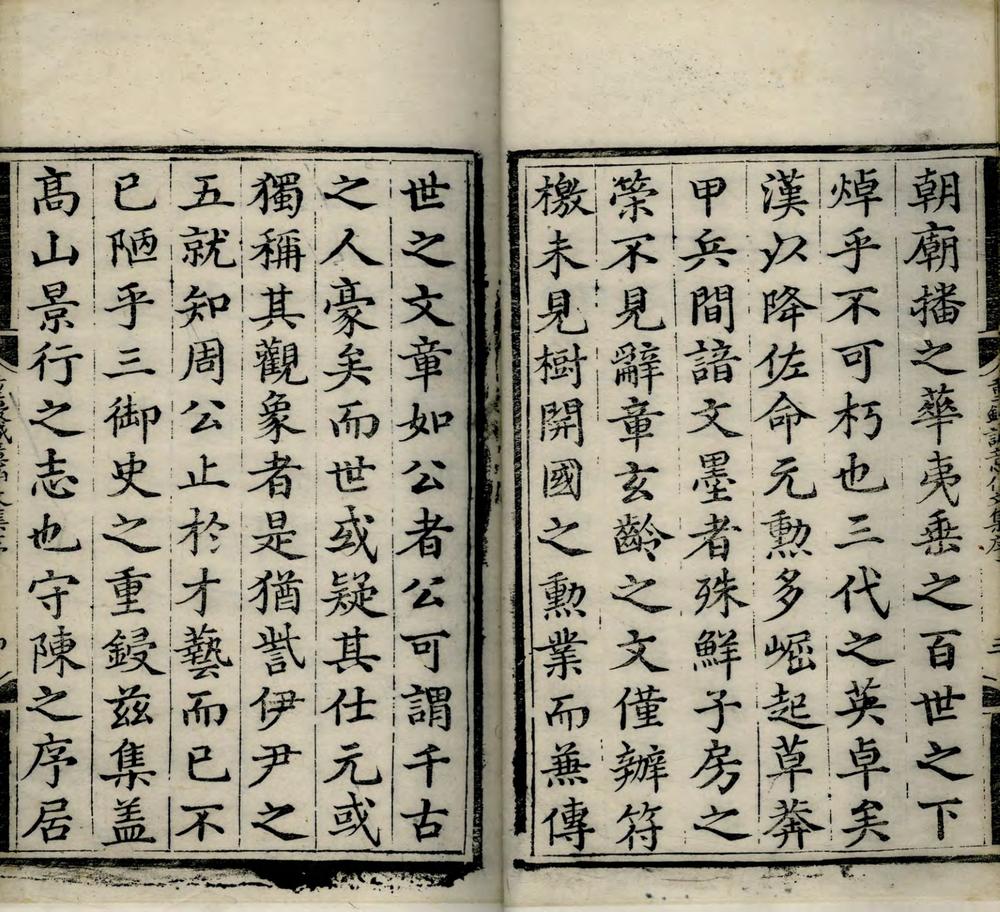 朝廟播之華夷垂之百世之下
焯乎不可朽也三代之英卓矣
漢以降佐命元勲多崛起草莽
甲兵間諳文墨者殊鮮子房之
策不見辭章玄齡之文僅辦符
檄未見樹開國之勲業而兼傳
世之文章如公者公可謂千古
之人豪矣而世或疑其仕元或
獨稱其觀象者是猶訾伊尹之
五就知周公止於才藝而已不
已陋乎三御史之重鋟兹集盖
高山景行之志也守陳之序居